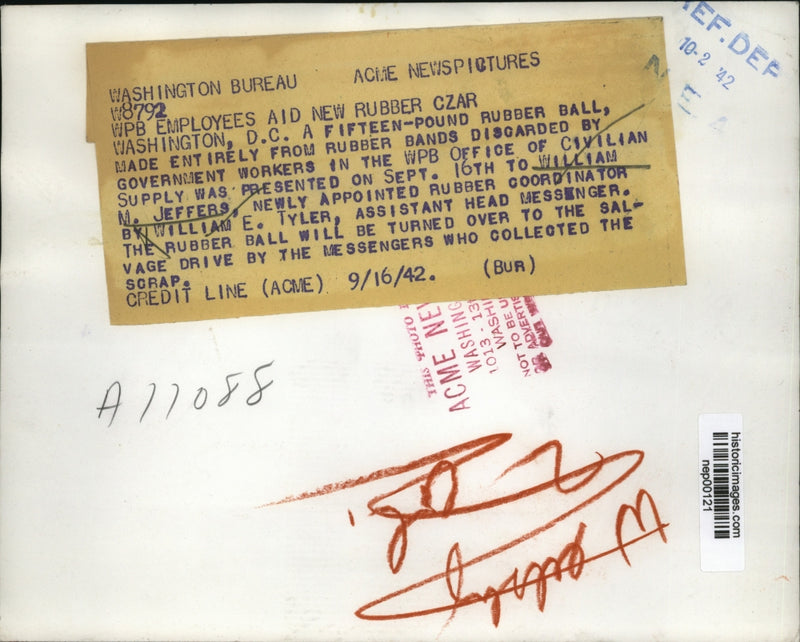 WASHINGTON BUREAU ACME NEWSPICTURES
W8792
WPB EMPLOYEES AID NEW RUBBER CZAR
WASHINGTON, D.C. A FIFTEEN-POUND RUBBER BALL,
MADE ENTIRELY FROM RUBBER BANDS DISCARDED BY
GOVERNMENT WORKERS IN THE WPB OFFICE OF CIVILIAN
SUPPLY WAS PRESENTED ON SEPT. 16TH TO WILLIAM
M. JEFFERS, NEWLY APPOINTED RUBBER COORDINATOR
BY WILLIAM E. TYLER, ASSISTANT HEAD MESSENGER.
THE RUBBER BALL WILL BE TURNED OVER TO THE SAL-
VAGE DRIVE BY THE MESSENGERS WHO COLLECTED THE
SCRAP.
CREDIT LINE (ACME) 9/16/42. (BUR)
EF. DEP
10-2 '42
N E A
THIS PHOTO
ACME NEW
WASHING
1013 - 13
WASHI
NOT TO BE U
ADVERTIS
A11088
historicimages.com
nep00121